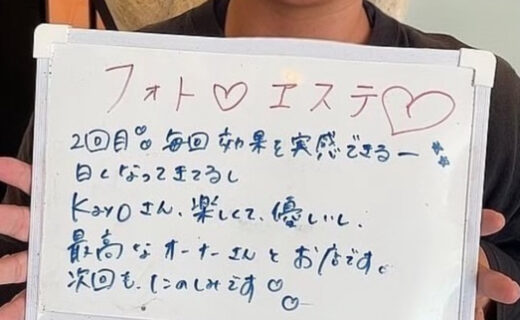 フォト♡エステ♡
2回目!! 毎回効果を実感できるー
白くなってきてるし
Kayoさん、楽しくて、優しいし、
最高なオーナーさんとお店です。
次回も、たのしみです♡